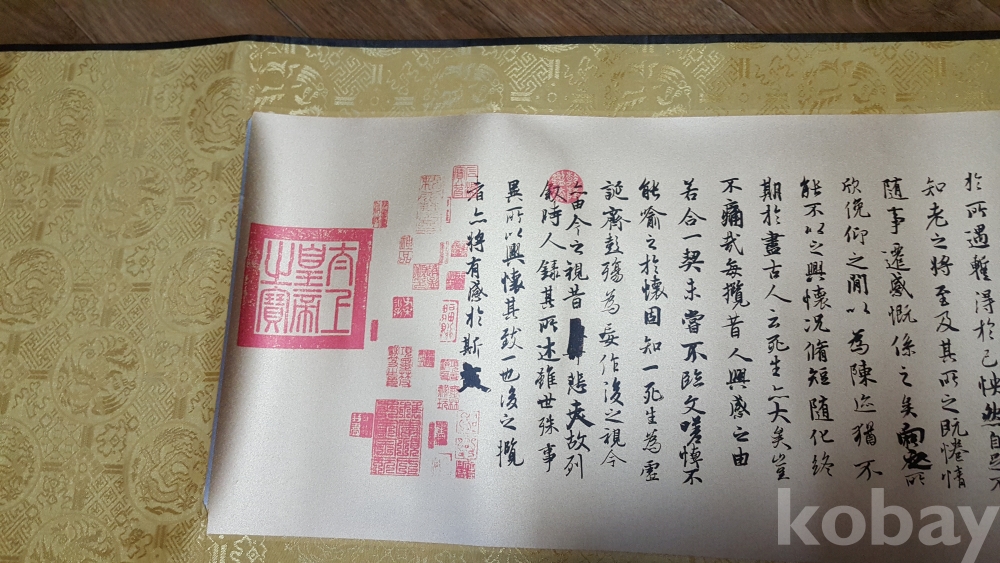 於所遇蹔得於己怏然自足不
知老之將至及其所之既惓情
隨事遷感慨係之矣向之所
欣俛仰之閒以為陳迹猶不
能不以之興懷況脩短隨化終
期於盡古人云死生亦大矣豈
不痛哉每攬昔人興感之由
若合一契未嘗不臨文嗟悼不
能喻之於懷固知一死生為虛
誕齊彭殤為妄作後之視今
亦由今之視昔悲夫故列
敘時人錄其所述雖世殊事
異所以興懷其致一也後之攬
者亦將有感於斯文
太上
皇帝
之寶
kobay